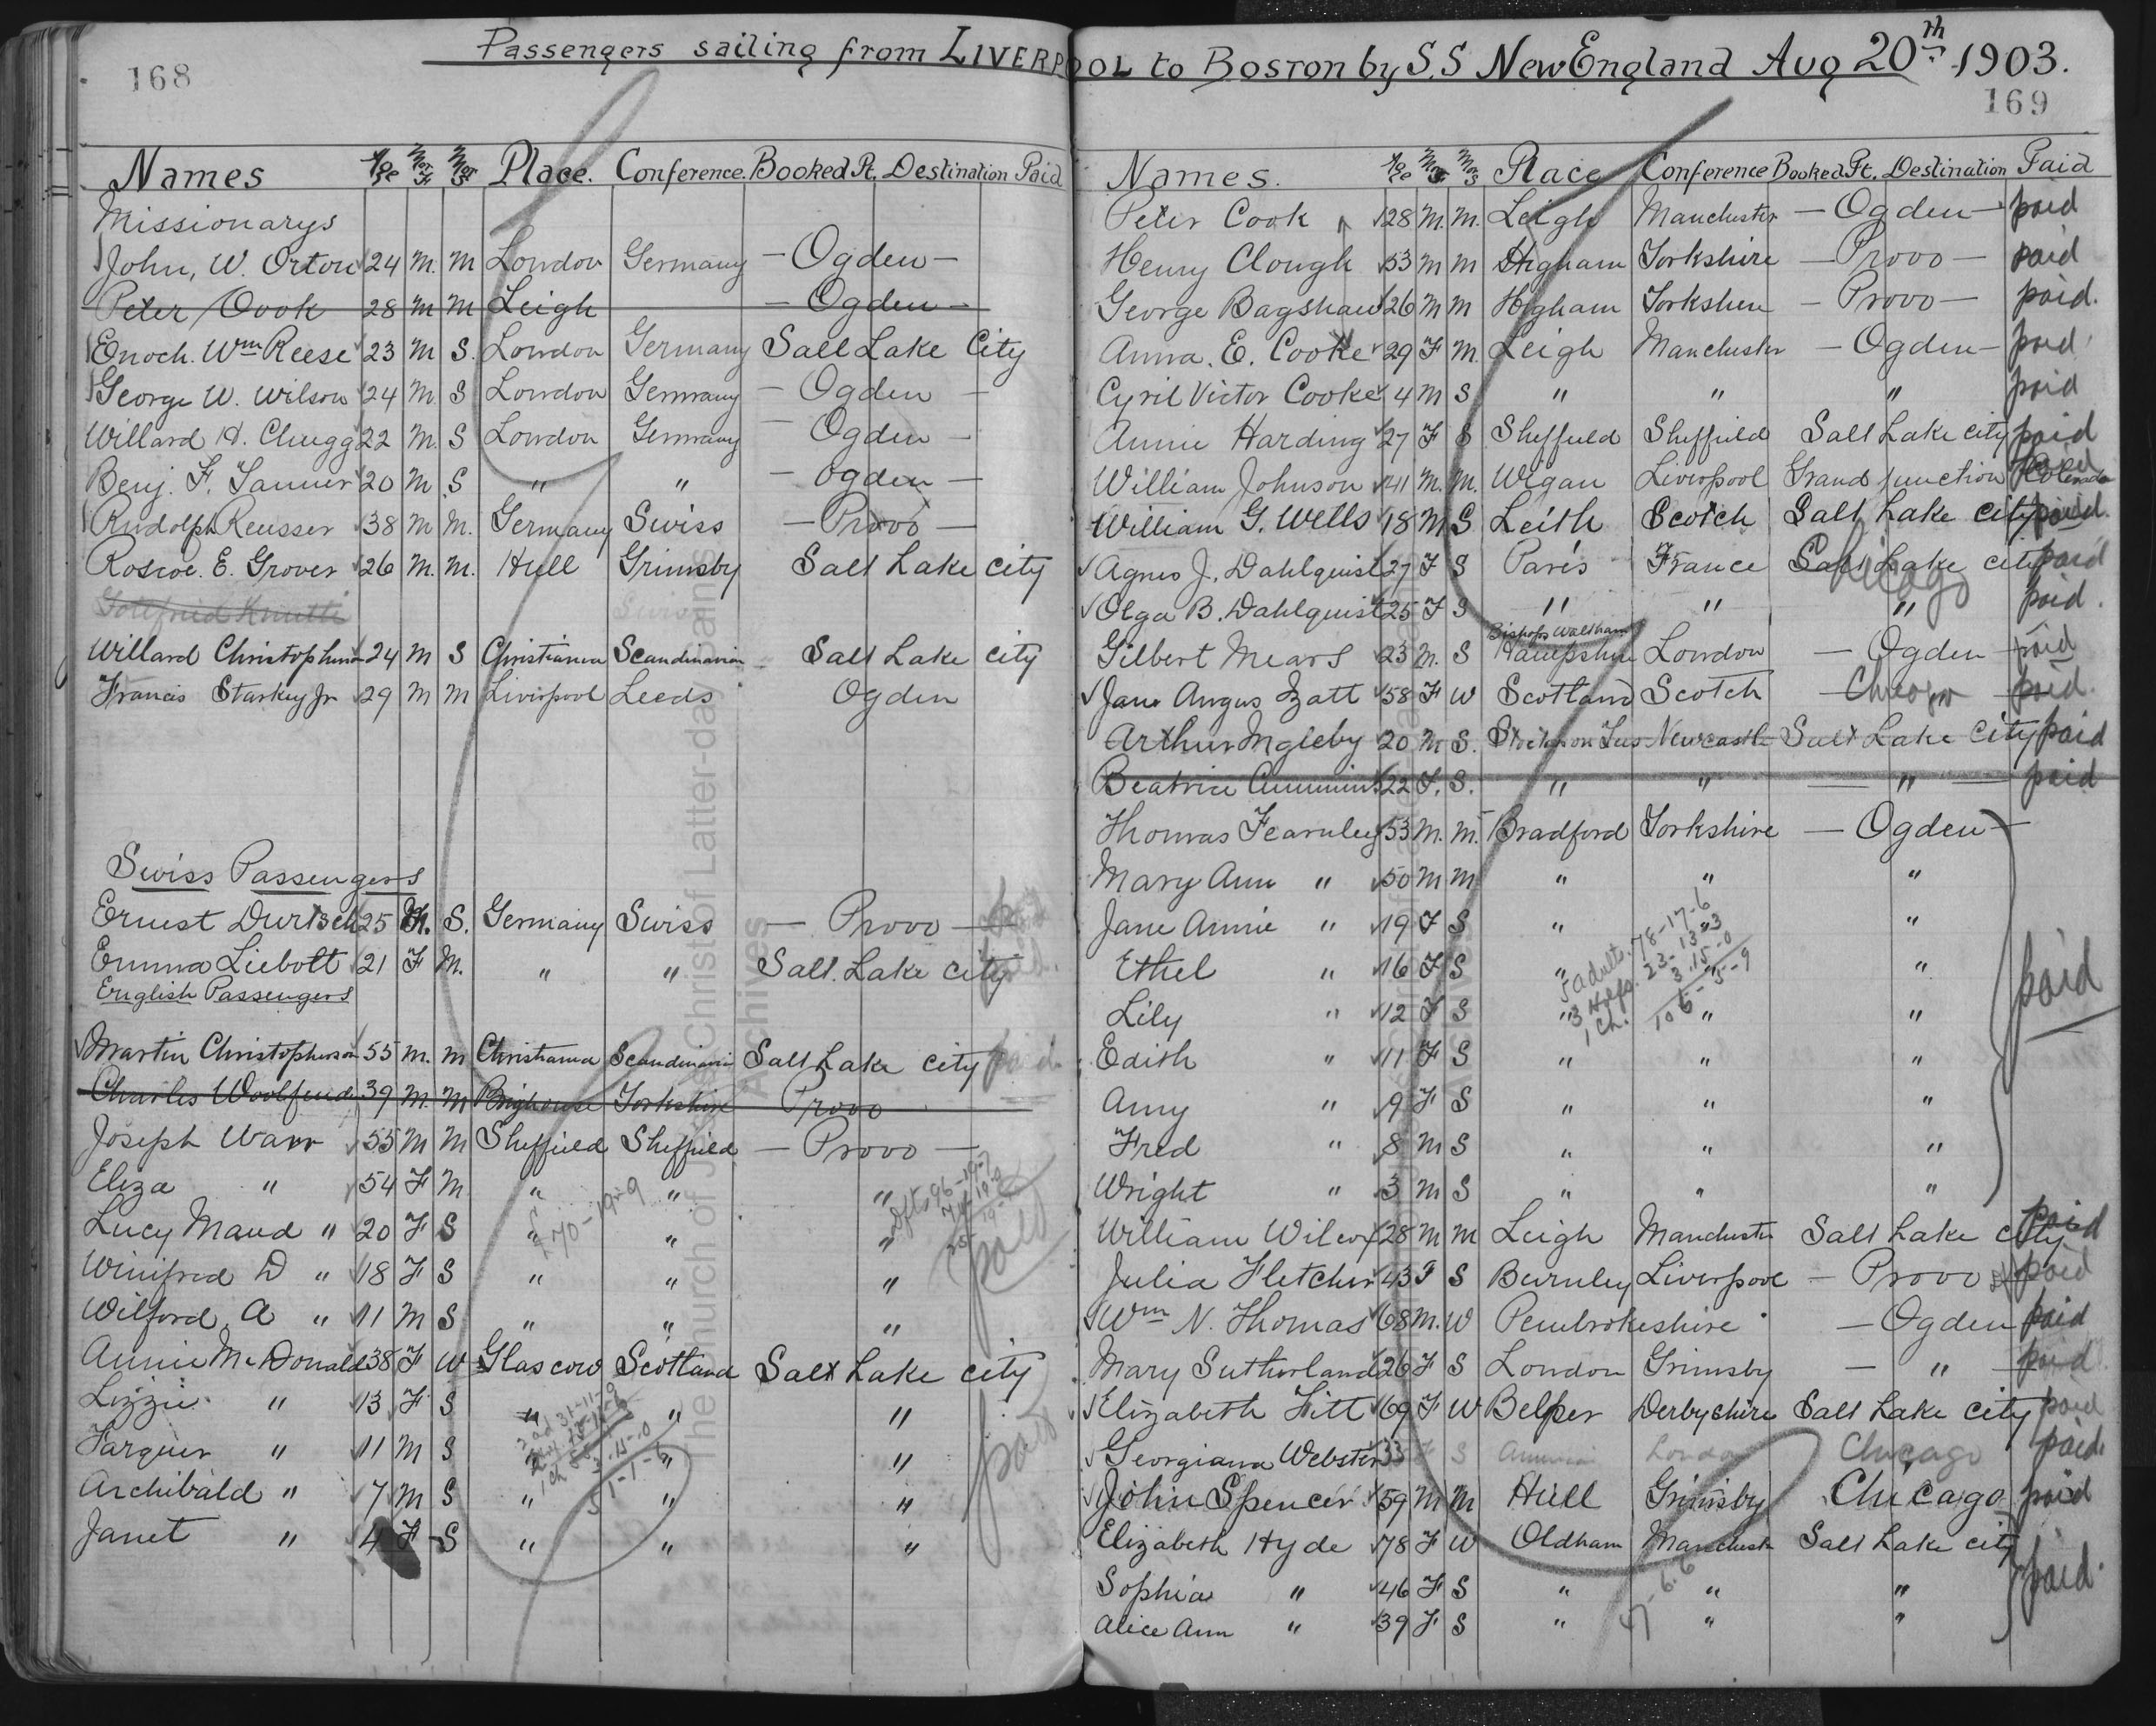 Passengers sailing from LIVERPOOL to Boston by S.S New England Aug 20th 1903.
168
Names Age M or F M or S Place. Conference. Booked Pt. Destination Paid
Missionarys
John, W. Orton 24 M. M London Germany - Ogden -
Peter Cook 28 M M Leigh - Ogden -
Enoch. Wm Reese 23 M S. London Germany Salt Lake City
George W. Wilson 24 M S London Germany - Ogden -
Willard H. Chugg 22 M. S London Germany - Ogden -
Benj. F. Tanner 20 M S " " - Ogden -
Rudolph Reusser 38 M M. Germany Swiss - Provo -
Roscoe. E. Grover 26 M. M. Hull Grimsby Salt Lake city
Willard Christopherson 24 M S Christiania Scandinavian Salt Lake city
Francis Starkey Jr 29 M M Liverpool Leeds Ogden
Swiss Passengers
Ernest Durtsch 25 M. S. Germany Swiss - Provo -
Emma Liebott 21 F M. " " Salt Lake city
English Passengers
Martin Christopherson 55 M. M Christiania Scandinavian Salt Lake city paid
Charles Woolfend 39 M. M Brighouse Yorkshire Provo
Joseph Warr 55 M M Sheffield Sheffield - Provo -
Eliza " 54 F M " " "
Lucy Maud " 20 F S " " "
Winifred D " 18 F S " " "
Wilford. A " 11 M S " " "
paid
Annie McDonald 38 F W Glascow Scotland Salt Lake city
Lizzie " 13 F S " " "
Farquer " 11 M S " " "
Archibald " 7 M S " " "
Janet " 4 F S " " "
paid
169
Names. Age M or F M or S Place Conference Booked Pt. Destination Paid
Peter Cook 28 M. M. Leigh Manchester - Ogden - paid
Henry Clough 33 M M Higham Yorkshire - Provo - paid
George Bagshaw 26 M M Higham Yorkshire - Provo - paid.
Anna. E. Cooke 29 F M. Leigh Manchester - Ogden - paid
Cyril Victor Cooke 4 M S " " " paid
Annie Harding 27 F S Sheffield Sheffield Salt Lake city paid
William Johnson 41 M. M. Wigan Liverpool Grand junction Colorado paid
William G. Wells 18 M S Leith Scotch Salt Lake city paid.
Agnes J. Dahlquist 27 F S Paris France Salt Lake city Chicago paid
Olga B. Dahlquist 25 F S " " " paid.
Gilbert Mears 23 M. S Bishops Waltham Hampshire London - Ogden - paid
Jane Angus Zatt 58 F W Scotland Scotch - Chicago - paid.
Arthur Ingleby 20 M S. Stockton on Tees Newcastle Salt Lake City paid
Beatrice Cummins 22 F. S. " " " paid
Thomas Fearnley 53 M. M. Bradford Yorkshire - Ogden -
Mary Ann " 50 M M " " "
Jane Annie " 19 F S " "
Ethel " 16 F S " "
Lily " 12 F S " " "
5 adults. 78-17-6
Edith " 11 F S " " "
Amy " 9 F S " " "
Fred " 8 M S " " "
Wright " 3 M S " " "
paid
William Wilcox 28 M M Leigh Manchester Salt Lake city paid
Julia Fletcher 43 F S Burnley Liverpool - Provo paid
Wm N. Thomas 68 M. W Pembrokeshire - Ogden paid
Mary Sutherland 26 F S London Grimsby - " - paid
Elizabeth Fitt 69 F W Belper Derbyshire Salt Lake city paid
Georgiana Webster 33 F S London Chicago paid.
John Spencer 59 M M Hull Grimsby Chicago paid
Elizabeth Hyde 78 F W Oldham Manchester Salt Lake city
Sophia " 46 F S " " "
Alice Ann " 39 F S " " "
paid.
The Church of Jesus Christ of Latter-day Saints
Archives